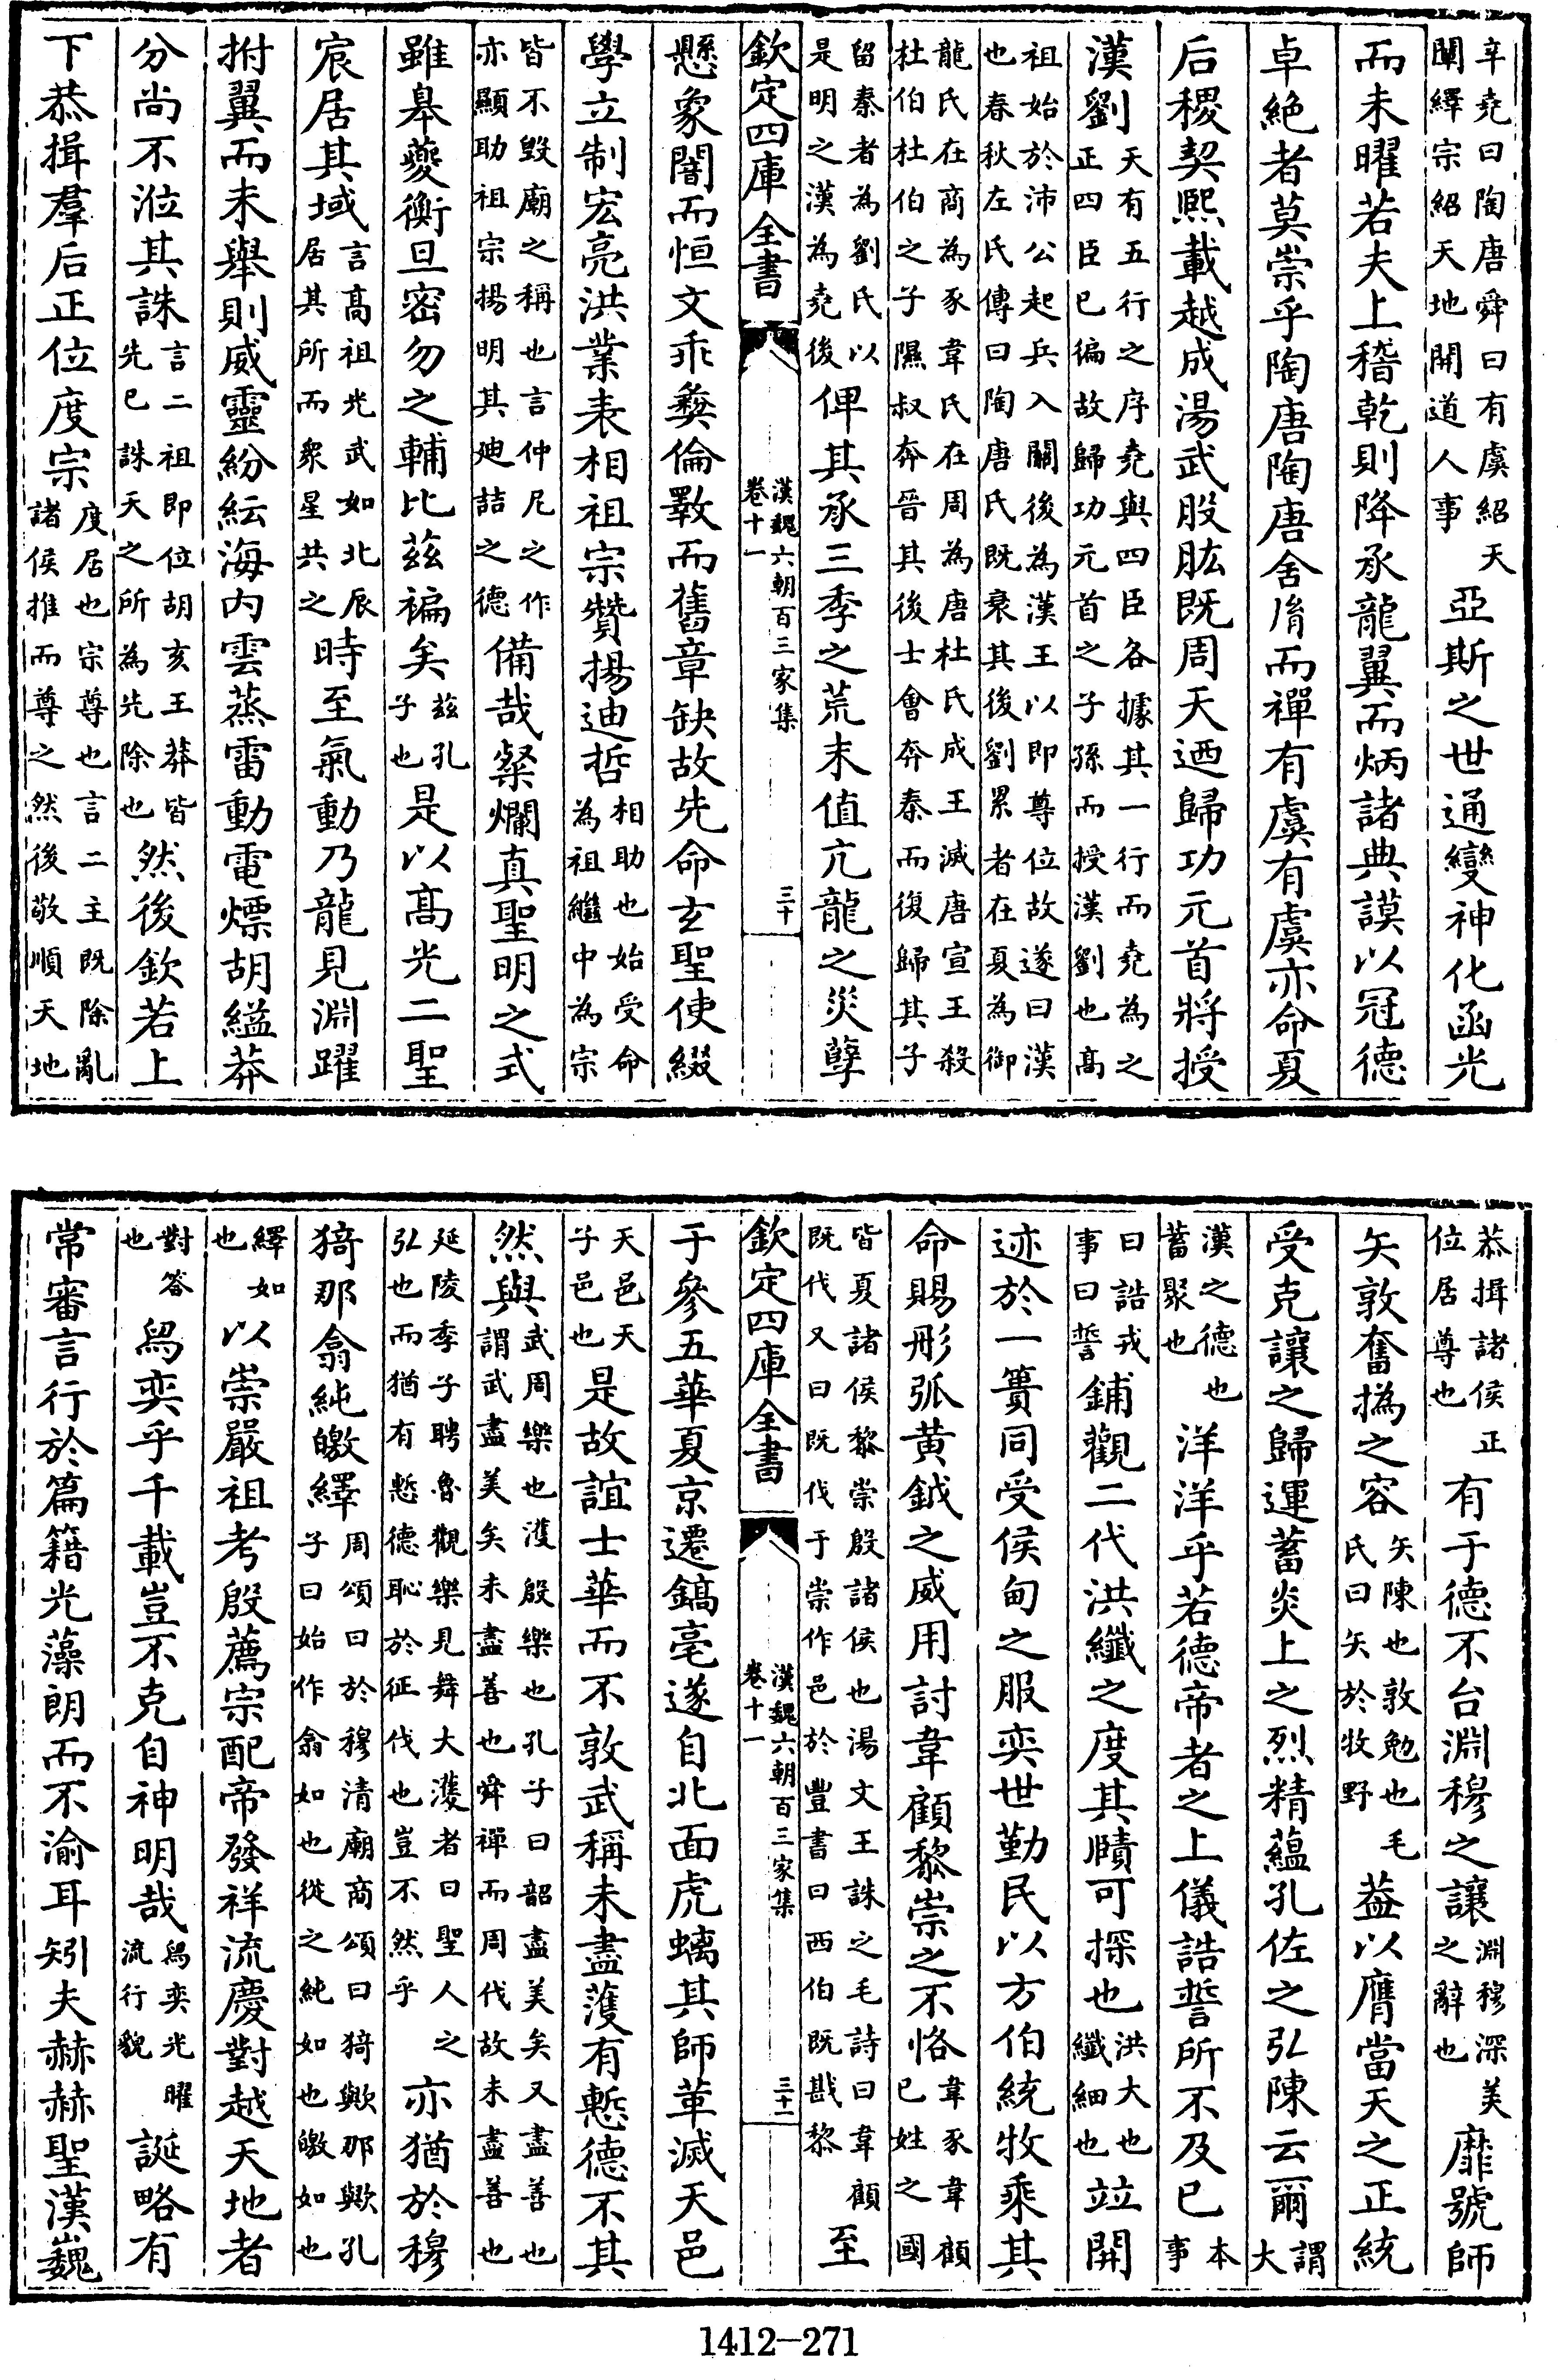 辛堯曰陶唐舜曰有虞紹天闡繹宗紹天地開道人事亞斯之世通變神化函光
而未曜若夫上稽乾則降承龍翼而炳諸典謨以冠德
卓絕者莫崇乎陶唐陶唐舍胤而禪有虞有虞亦命夏
后稷契熙載越成湯武股肱既周天迺歸功元首將授
漢劉天有五行之序堯與四臣各據其一行而堯為之正四臣已徧故歸功元首之子孫而授漢劉也高
祖始於沛公起兵入關後為漢王以即尊位故遂曰漢也春秋左氏傳曰陶唐氏既衰其後劉累者在夏為御
龍氏在商為豕韋氏在周為唐杜氏成王滅唐宣王殺杜伯杜伯之子隰叔奔晉其後士會奔秦而復歸其子
留秦者為劉氏以是明之漢為堯後俾其承三季之荒末值亢龍之災孽
欽定四庫全書 漢魏六朝百三家集 卷十一 三十
懸象闇而恒文乖彝倫斁而舊章缺故先命玄聖使綴
學立制宏亮洪業表相祖宗贊揚迪哲相助也始受命為祖繼中為宗
皆不毀廟之稱也言仲尼之作亦顯助祖宗揚明其廸喆之德備哉粲爛真聖明之式
雖臯夔衡旦密勿之輔比茲褊矣茲孔子也是以高光二聖
宸居其域言高祖光武如北辰居其所而衆星共之時至氣動乃龍見淵躍
拊翼而未舉則威靈紛紜海內雲蒸雷動電熛胡縊莽
分尚不涖其誅言二祖即位胡亥王莽皆先已誅天之所為先除也然後欽若上
下恭揖羣后正位度宗度居也宗尊也言二主既除亂諸侯推而尊之然後敬順天地
恭揖諸侯正位居尊也有于德不台淵穆之讓淵穆深美之辭也靡號師
矢敦奮撝之容矢陳也敦勉也毛氏曰矢於牧野葢以膺當天之正統
受克讓之歸運蓄炎上之烈精蘊孔佐之弘陳云爾謂大
漢之德也蓄聚也洋洋乎若德帝者之上儀誥誓所不及已本事
曰誥戎事曰誓鋪觀二代洪纖之度其賾可探也洪大也纖細也竝開
迹於一簣同受侯甸之服奕世勤民以方伯統牧乘其
命賜彤弧黄鉞之威用討韋顧黎崇之不恪韋豕韋顧已姓之國
皆夏諸侯黎崇殷諸侯也湯文王誅之毛詩曰韋顧既伐又曰既伐于崇作邑於豐書曰西伯既戡黎至
欽定四庫全書 漢魏六朝百三家集 卷十一 三十一
于參五華夏京遷鎬亳遂自北面虎螭其師革滅天邑
天邑天子邑也是故誼士華而不敦武稱未盡護有慙德不其
然與武周樂也濩殷樂也孔子曰韶盡美矣又盡善也謂武盡美矣未盡善也舜禪而周伐故未盡善也
延陵季子聘魯觀樂見舞大濩者曰聖人之弘也而猶有慙德恥於征伐也豈不然乎亦猶於穆
猗那翕純皦繹周頌曰於穆清廟商頌曰猗歟那歟孔子曰始作翕如也從之純如也皦如也
繹如也以崇嚴祖考殷薦宗配帝發祥流慶對越天地者
對答也舄奕乎千載豈不克自神明哉舄奕光曜流行貌誕略有
常審言行於篇籍光藻朗而不渝耳矧夫赫赫聖漢巍
1412-271